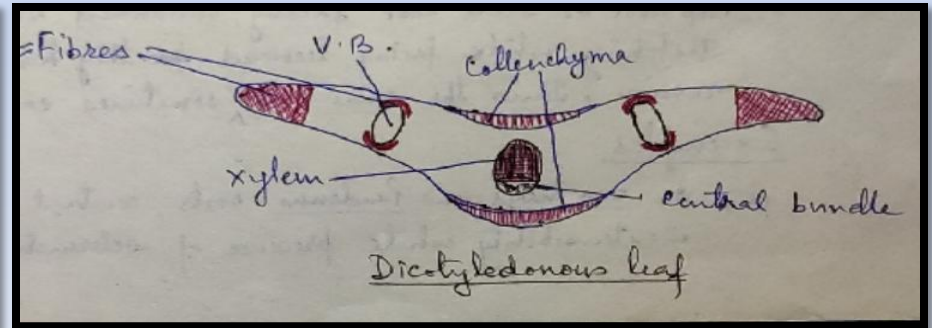 =Fibres
V.B.
Collenchyma
Xylem
Central bundle
Dicotyledonous leaf